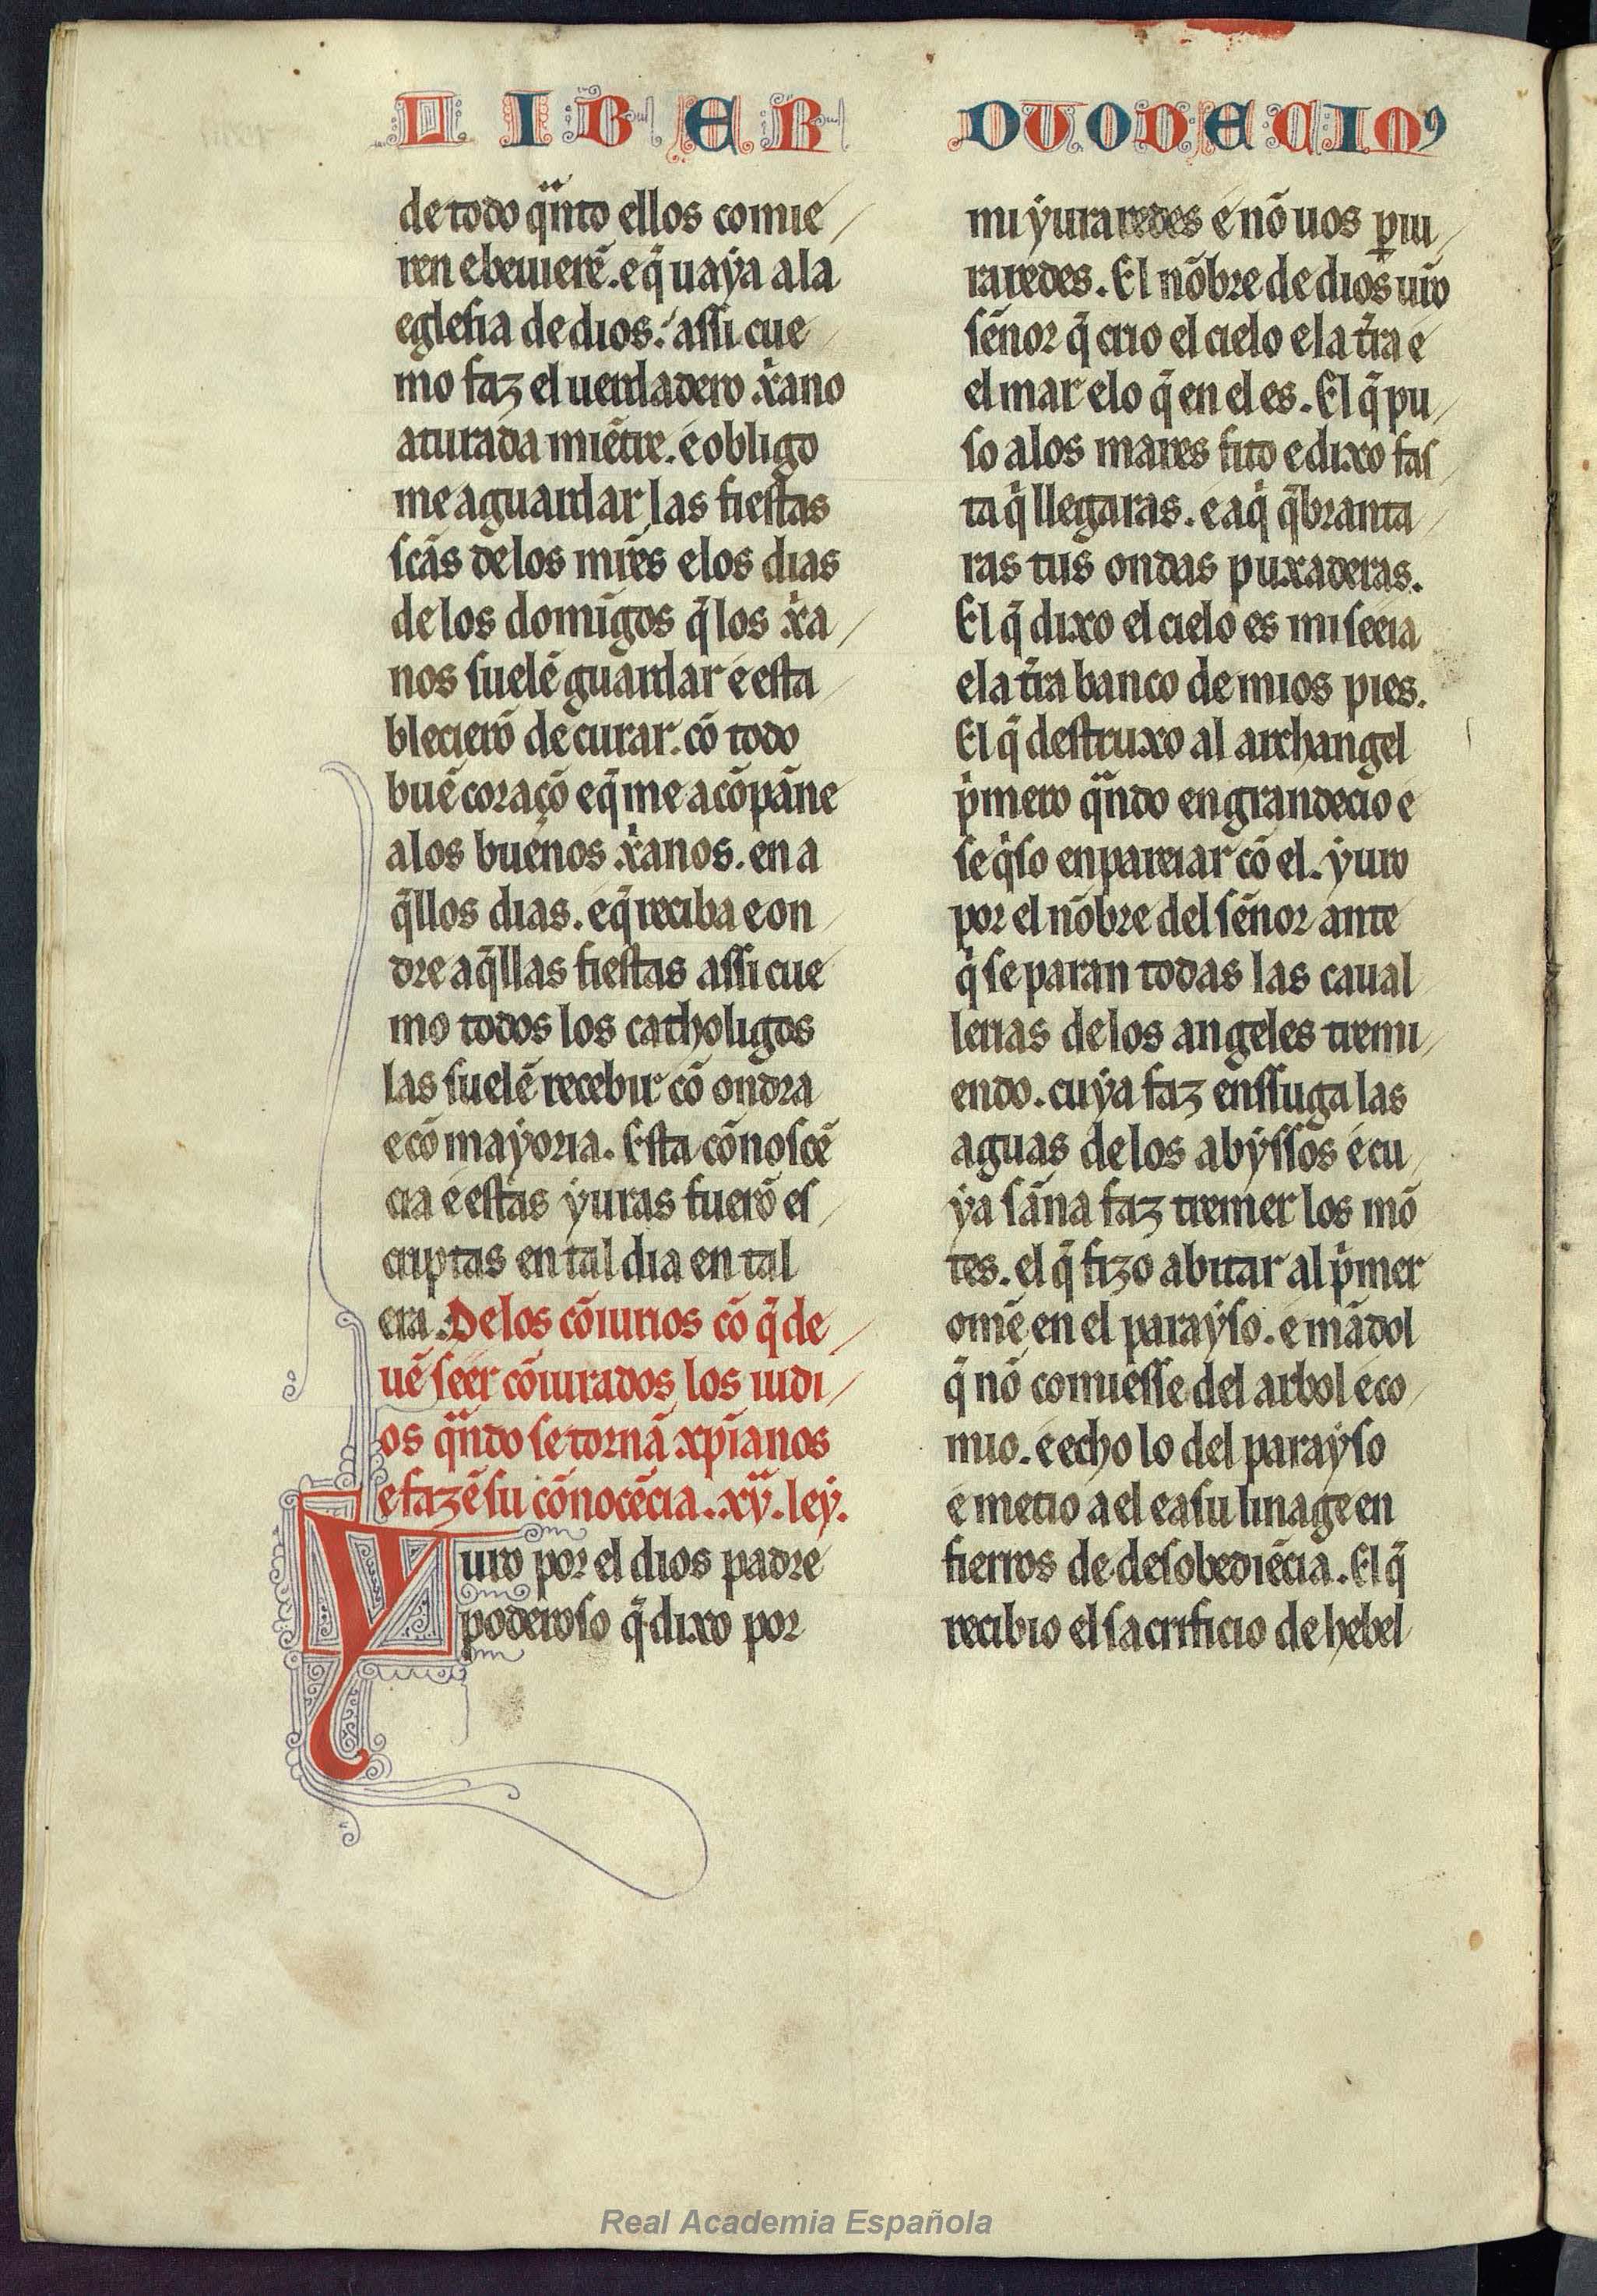 LIBER
DUODECIMꝰ
de todo qⁿnto ellos comie /
ren e beuierẽ. e q̃ uaẏa a la
eglesia de dios. assi cue /
mo faz el uerdadero xⁱano
aturada miẽtre. e obligo
me a guardar las fiestas
scãs de los mr̃es e los dias
de los domĩgos q̃ los xⁱa /
nos suelẽ guardar e esta /
blecierõ de curar. cõ todo
buẽ coraçõ e q̃ me acõpãne
a los buenos xⁱanos. en a
q̃llos dias. e q̃ reciba e on /
dre aq̃llas fiestas assi cue
mo todos los catholigos
las suelẽ recebir cõ ondra
e cõ maẏoria. Esta cõnoscẽ
cia e estas ẏuras fuerõ es /
criptas en tal dia en tal
era. De los cõiurios cõ q̃ de /
uẽ seer cõiurados los iudi /
os qⁿndo se tornã xp̃ianos
e fazẽ su cõnocẽcia. .xv. leẏ.
Yuro por el dios padre
poderoso q̃ dixo por
mi ẏuraredes e nõ uos ꝑiu /
raredes. El nõbre de dios uiro
sẽnor q̃ crio el cielo e la tr̃ra e
el mar e lo q̃ en el es. El q̃ pu /
so a los mares fito e dixo fas /
ta qⁱ llegaras. e aqⁱ q̃branta /
ras tus ondas puxaderas.
El q̃ dixo el cielo es mi seeia
e la tr̃ra banco de mios pies.
El q̃ destruxo al archangel
pⁱmero qⁿndo engrandecio e
se qⁱso enpareiar cõ el. ẏuro
por el nõbre del sẽnor ante
qⁱ se paran todas las caual /
lerias de los angeles tremi /
endo. cuẏa faz enssuga las
aguas de los abẏssos e cu /
ẏa sãna faz tremer los mõ
tes. el q̃ fizo abitar al pⁱmer
omẽ en el paraẏso. e mãdol
q̃ nõ comiesse del arbol e co /
mio. e echo lo del paraẏso
e metio a el e a su linage en
fierros de desobediẽcia. El q̃
recibio el sacrificio de hebel
Real Academia Española